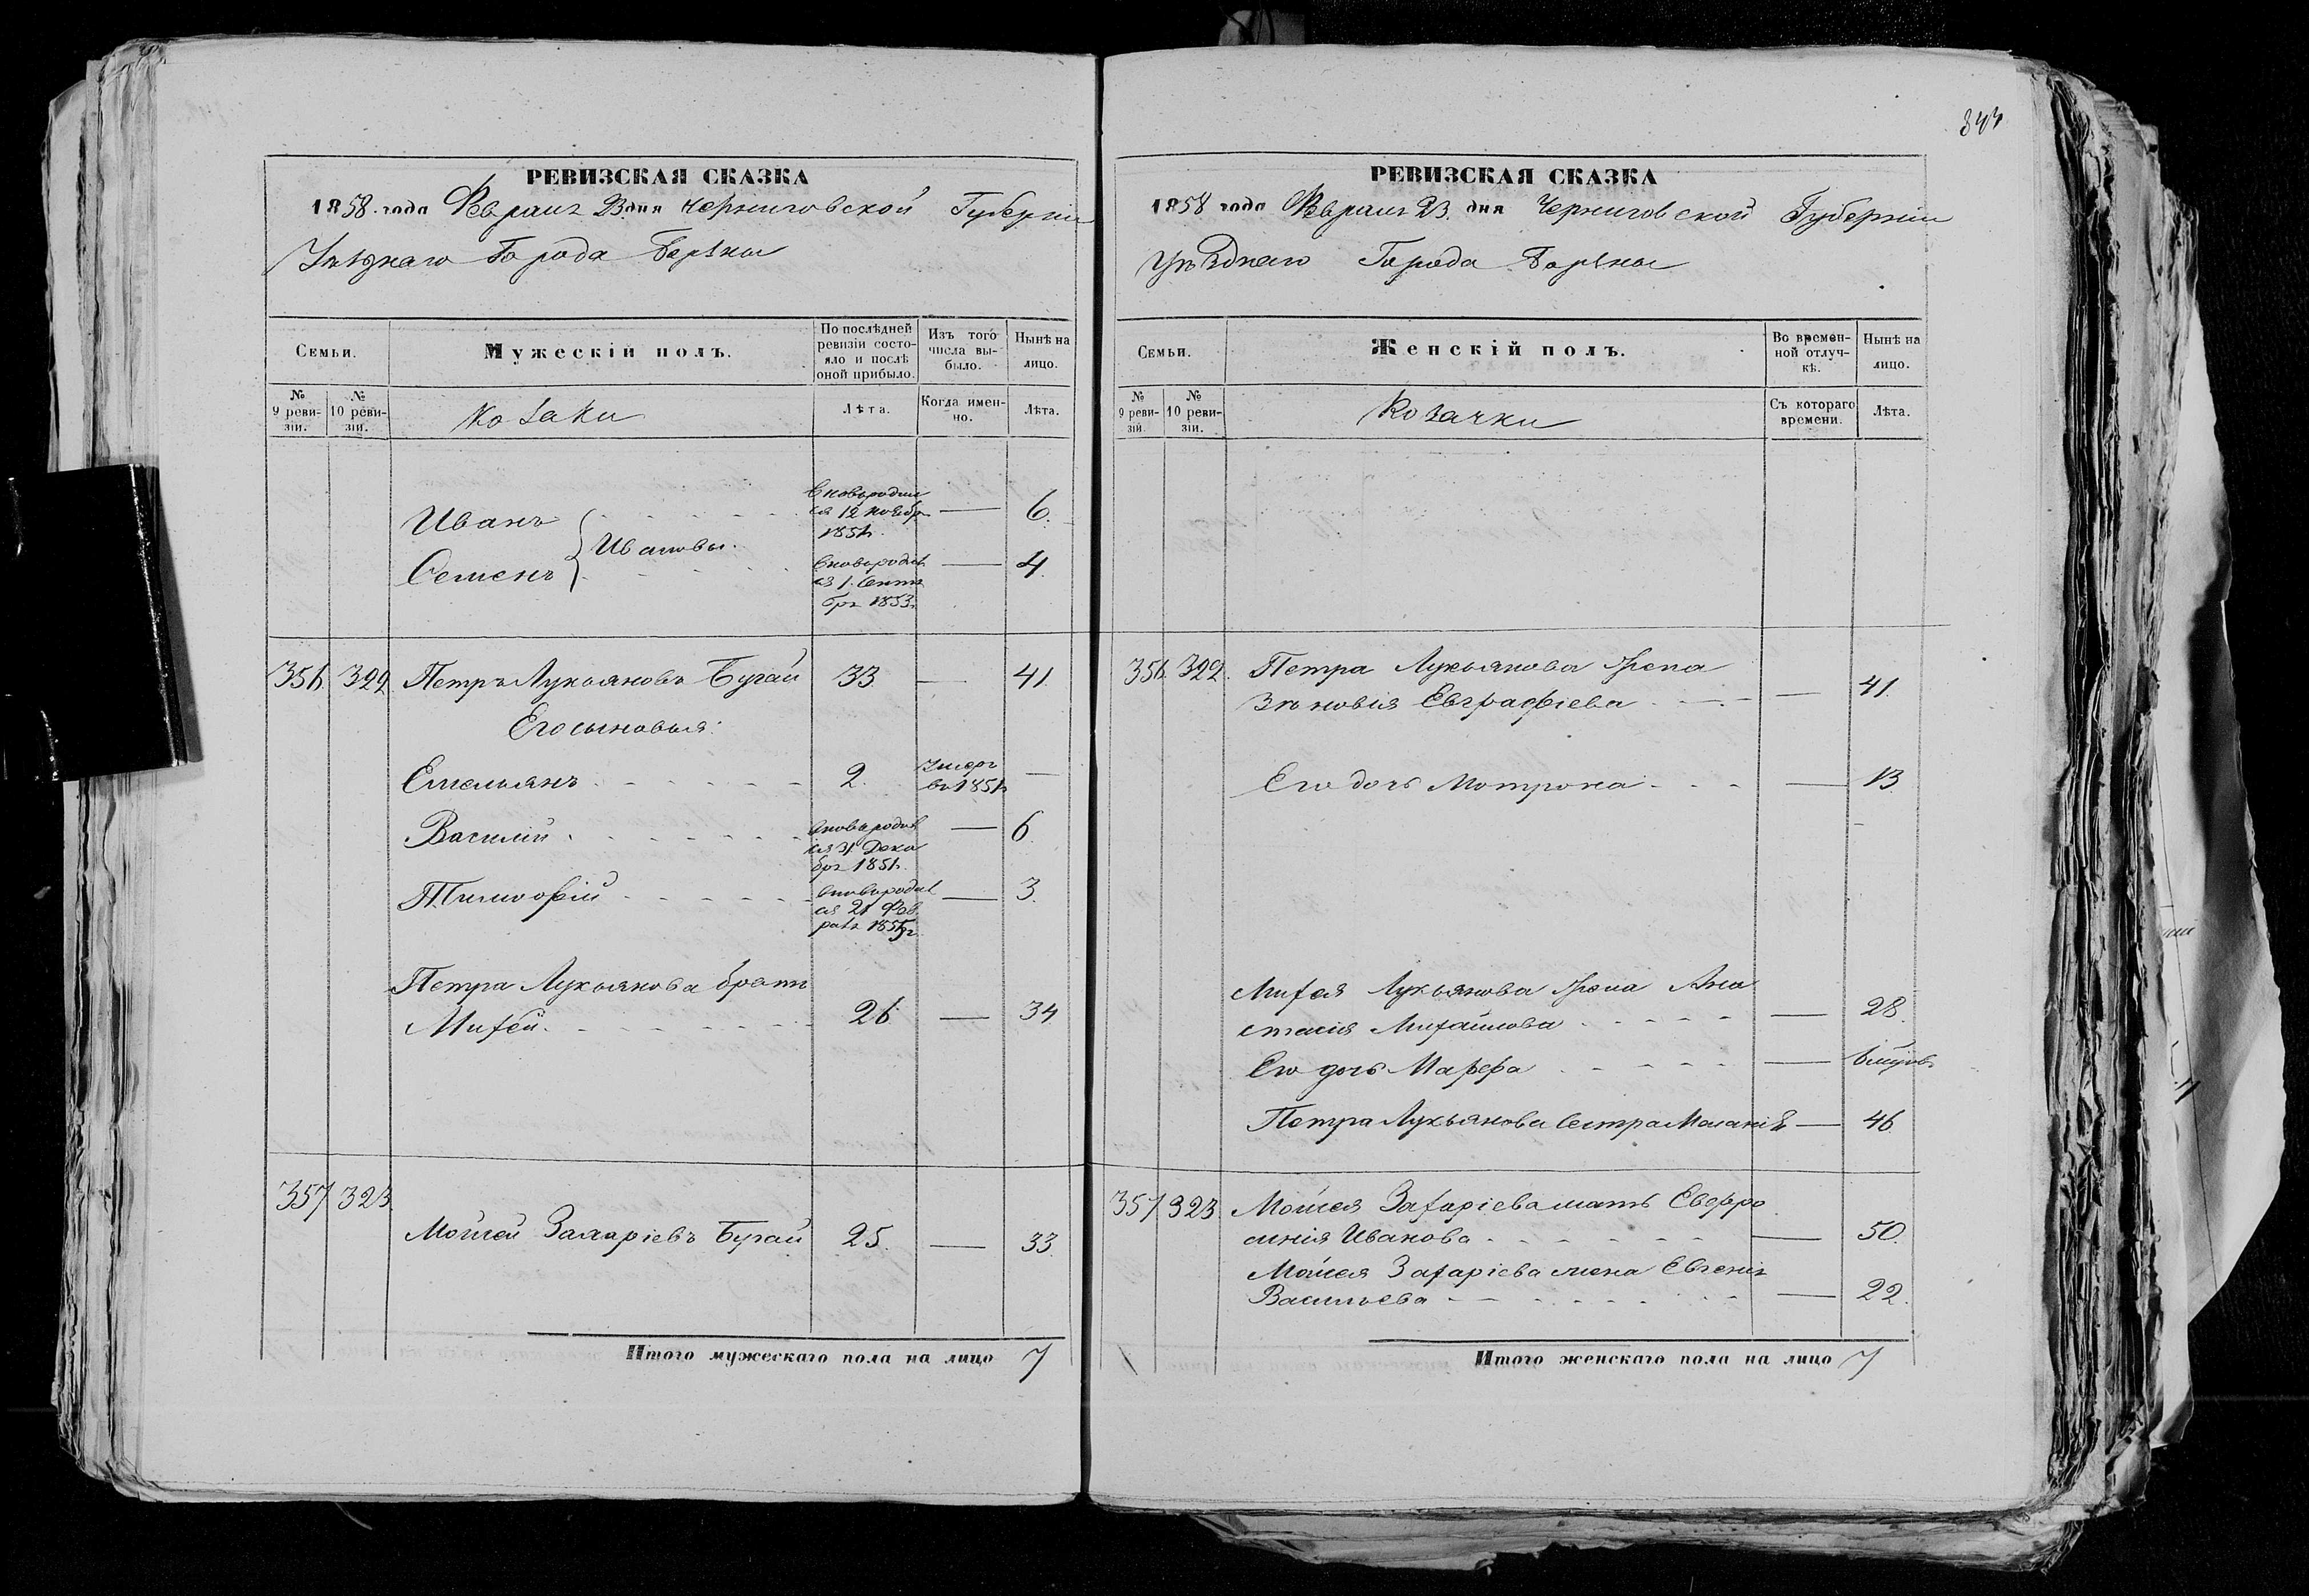 344
РЕВИЗСКАЯ СКАЗКА
1858 года Февраля 23 дня Черниговской Губерніи
Уѣзднаго Города Борзны
Семьи.
Мужескій полъ.
По послѣдней ревизіи состояло и послѣ оной прибыло.
Изъ того числа выбыло.
Нынѣ на лицо.
№ 9 ревизіи.
№ 10 ревизіи.
Козаки
Лѣта.
Когда именно.
Лѣта.
Иванъ
Ивановы.
вновьродил
ся 12 ноябр
1851г.
— 6.
Семенъ
вновьродил
ся 1. Сентя
бря 1853.
— 4.
356. 322. Петръ Лукьяновъ Бугай 33 — 41.
Его сыновья:
Емельянъ 2. Умеръ
въ 1851г —
Василій
вновьродил
ся 31 Дека
бря 1851г.
— 6.
Тимофій
вновьродил
ся 21 Фев
раля 1855г.
— 3.
Петра Лукьянова братъ
Михей 26 — 34.
357 323.
Мойсей Захаріевъ Бугай 25. — 33.
Итого мужескаго пола на лицо 7
РЕВИЗСКАЯ СКАЗКА
1858 года Февраля 23. дня Черниговской Губерніи
Уѣзднаго Города Борзны
Семьи.
Женскій полъ.
Во временной отлучкѣ.
Нынѣ на лицо.
№ 9 ревизій.
№ 10 ревизіи.
Козачки
Съ котораго времени.
Лѣта.
356. 322. Петра Лукьянова жена
Зѣновія Евграфіева — 41.
Его дочь Мотрона — 13.
Михея Лукьянова жена Ана
стасія Михайлова — 28.
Его дочь Марфа —
Петра Лукьянова Сестра Меланія — 46.
357 323. Мойсея Захаріева мать Евфро
синія Иванова — 50.
Мойсея Захаріева жена Евгенія
Васильева — 22.
Итого женскаго пола на лицо 7